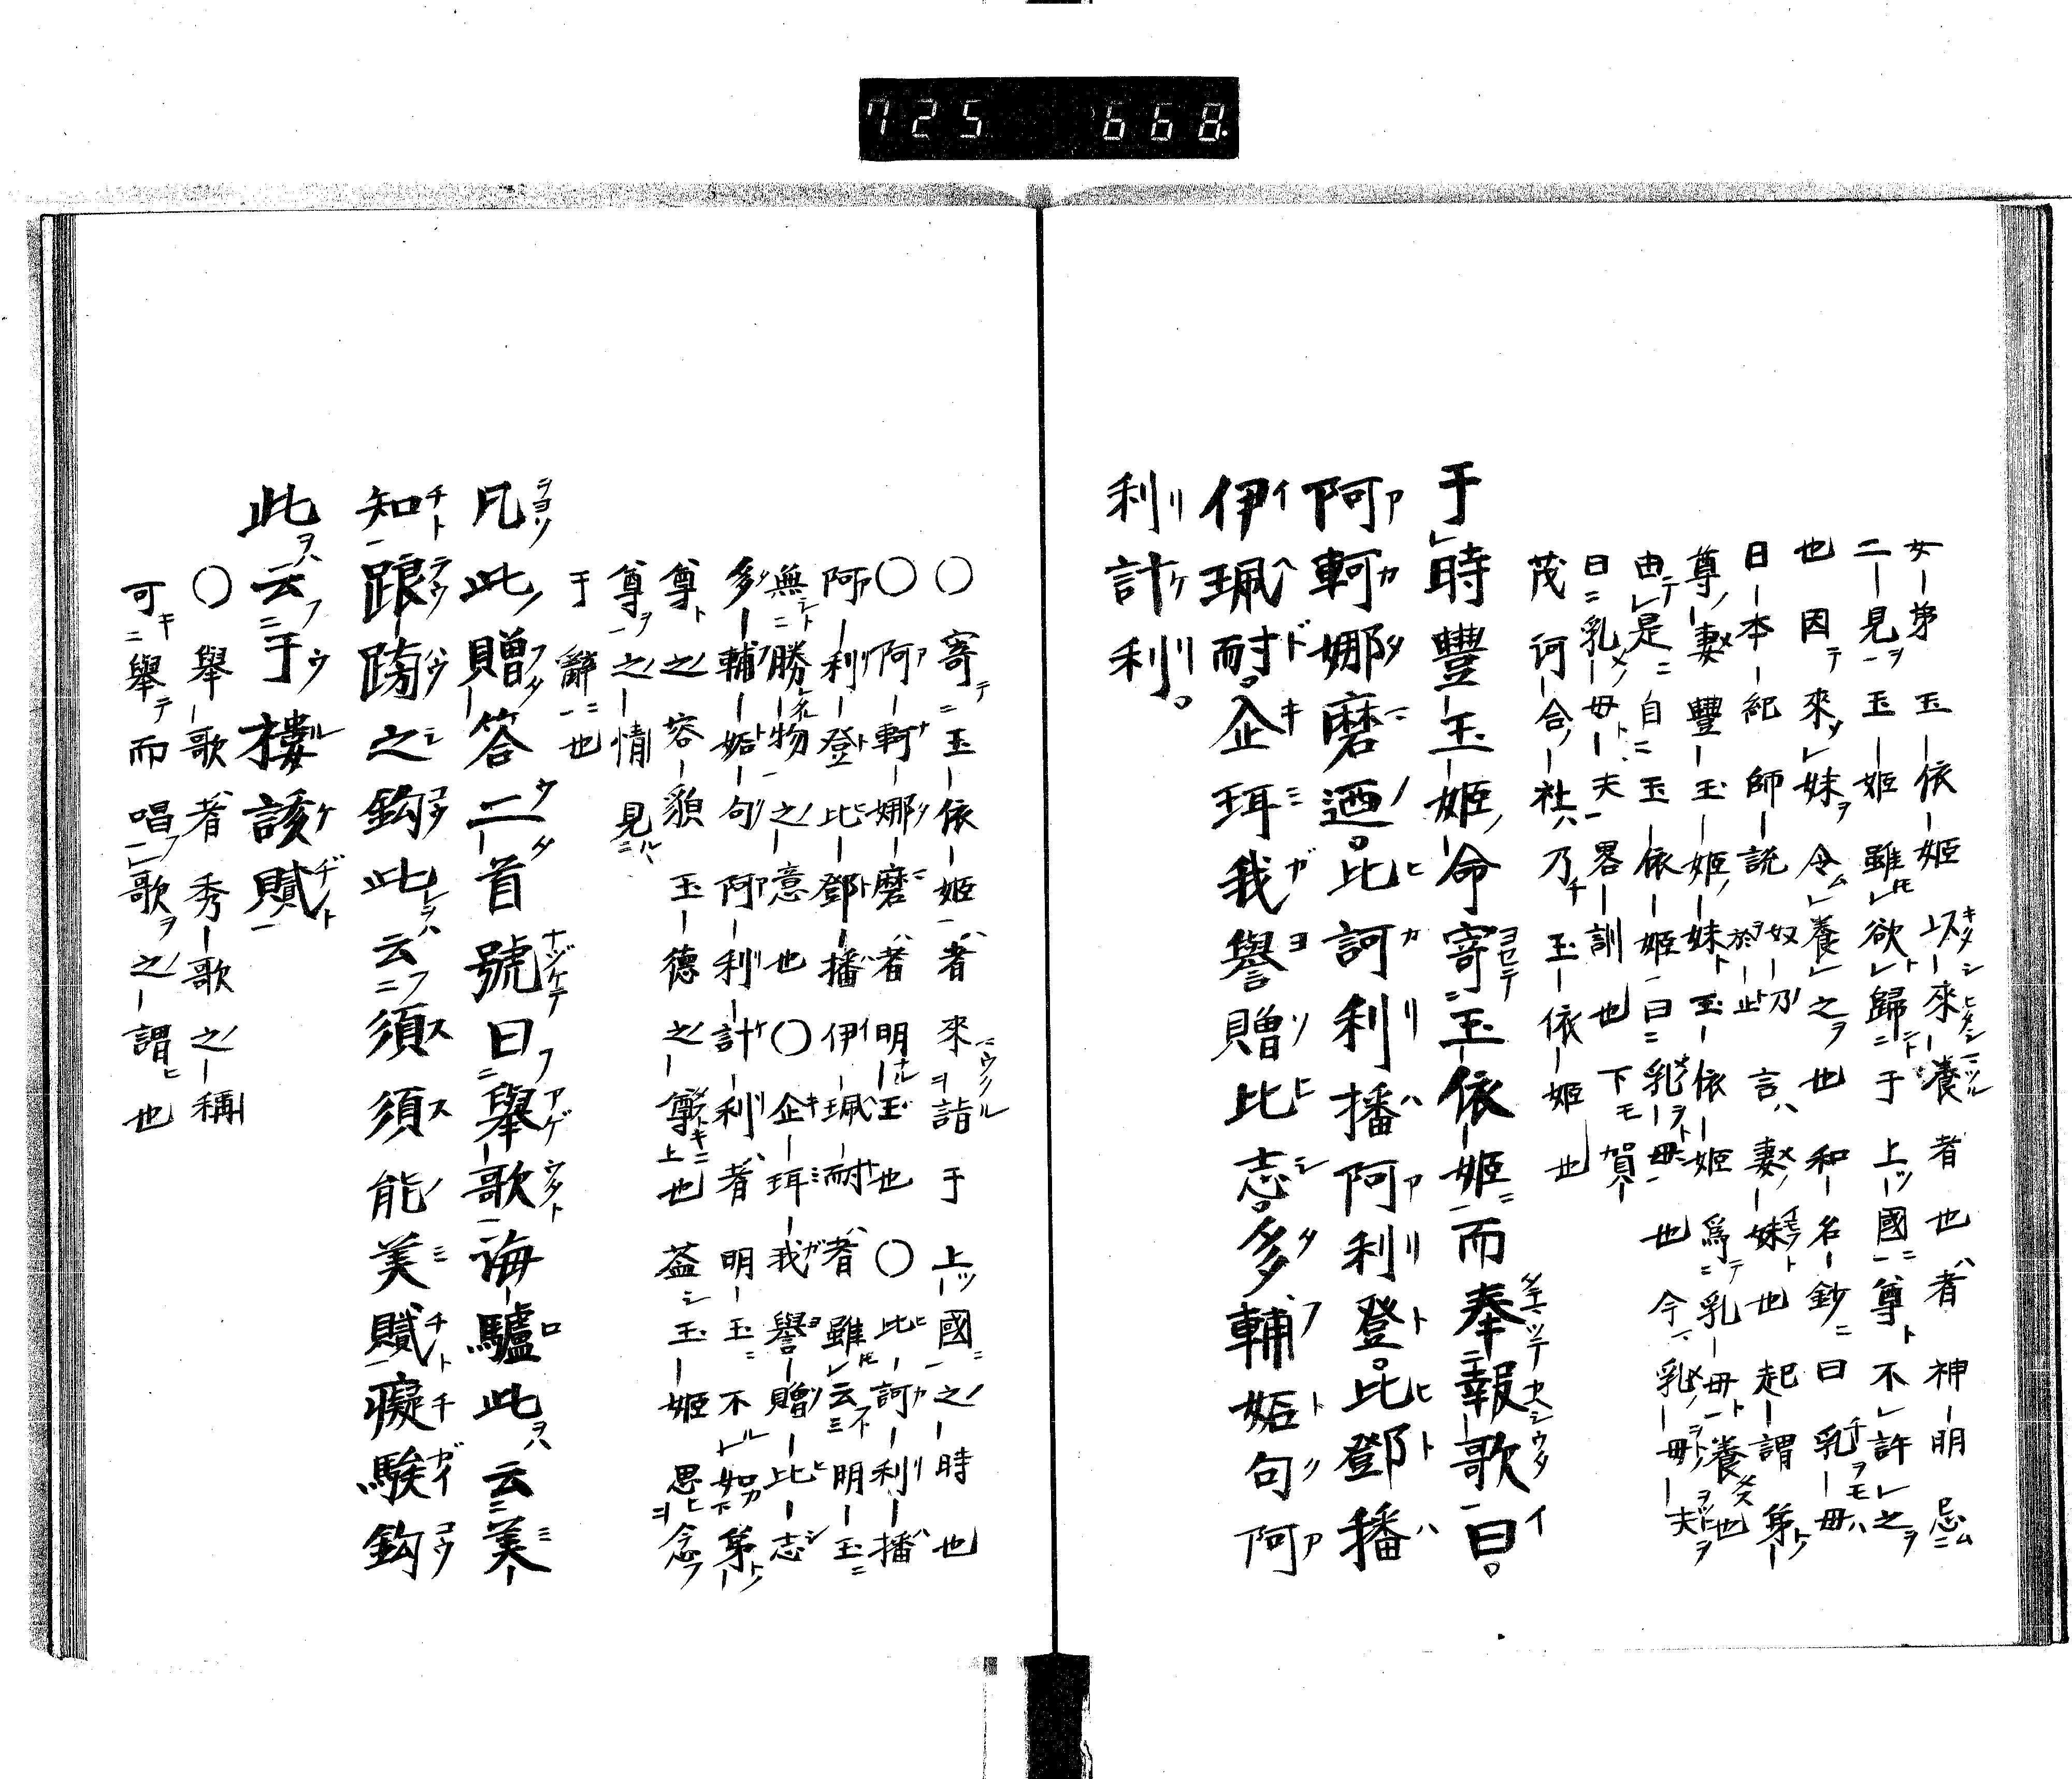 725 668.
女第玉依姫以來養者也者神明忌
二見玉姫雖欲歸于上國尊不許之
也因來妹令養之也和名鈔曰乳母
日本紀師說奴乃於止言妻妹也起謂第
尊妻豐玉姫妹玉依姫爲乳母養也
由是自玉依姫曰乳母也今乳母夫
曰乳母夫畧訓也下賀
茂河合社乃玉依姫也
于時豐玉姫命寄玉依姫而奉報歌曰
阿軻娜磨迺比訶利播阿利登比鄧播
伊珮耐企珥我譽贈比志多輔妬句阿
利計利
○寄玉依姫者來詣于上國之時也
○阿軻娜磨者明玉也○比訶利播
阿利登比鄧播伊珮耐者雖云明玉
無勝物之意也○企珥我譽贈比志
多輔妬句阿利計利者明玉不如第
尊之容貌玉德之尊上也蓋玉姫思念
尊之情見
于辭也
凡此贈答二首號曰舉歌海驢此云美
知踉䠙之鈎此云須須能美膩癡騃鈎
此云于樓該膩
○舉歌者秀歌之稱
可舉而唱歌之謂也